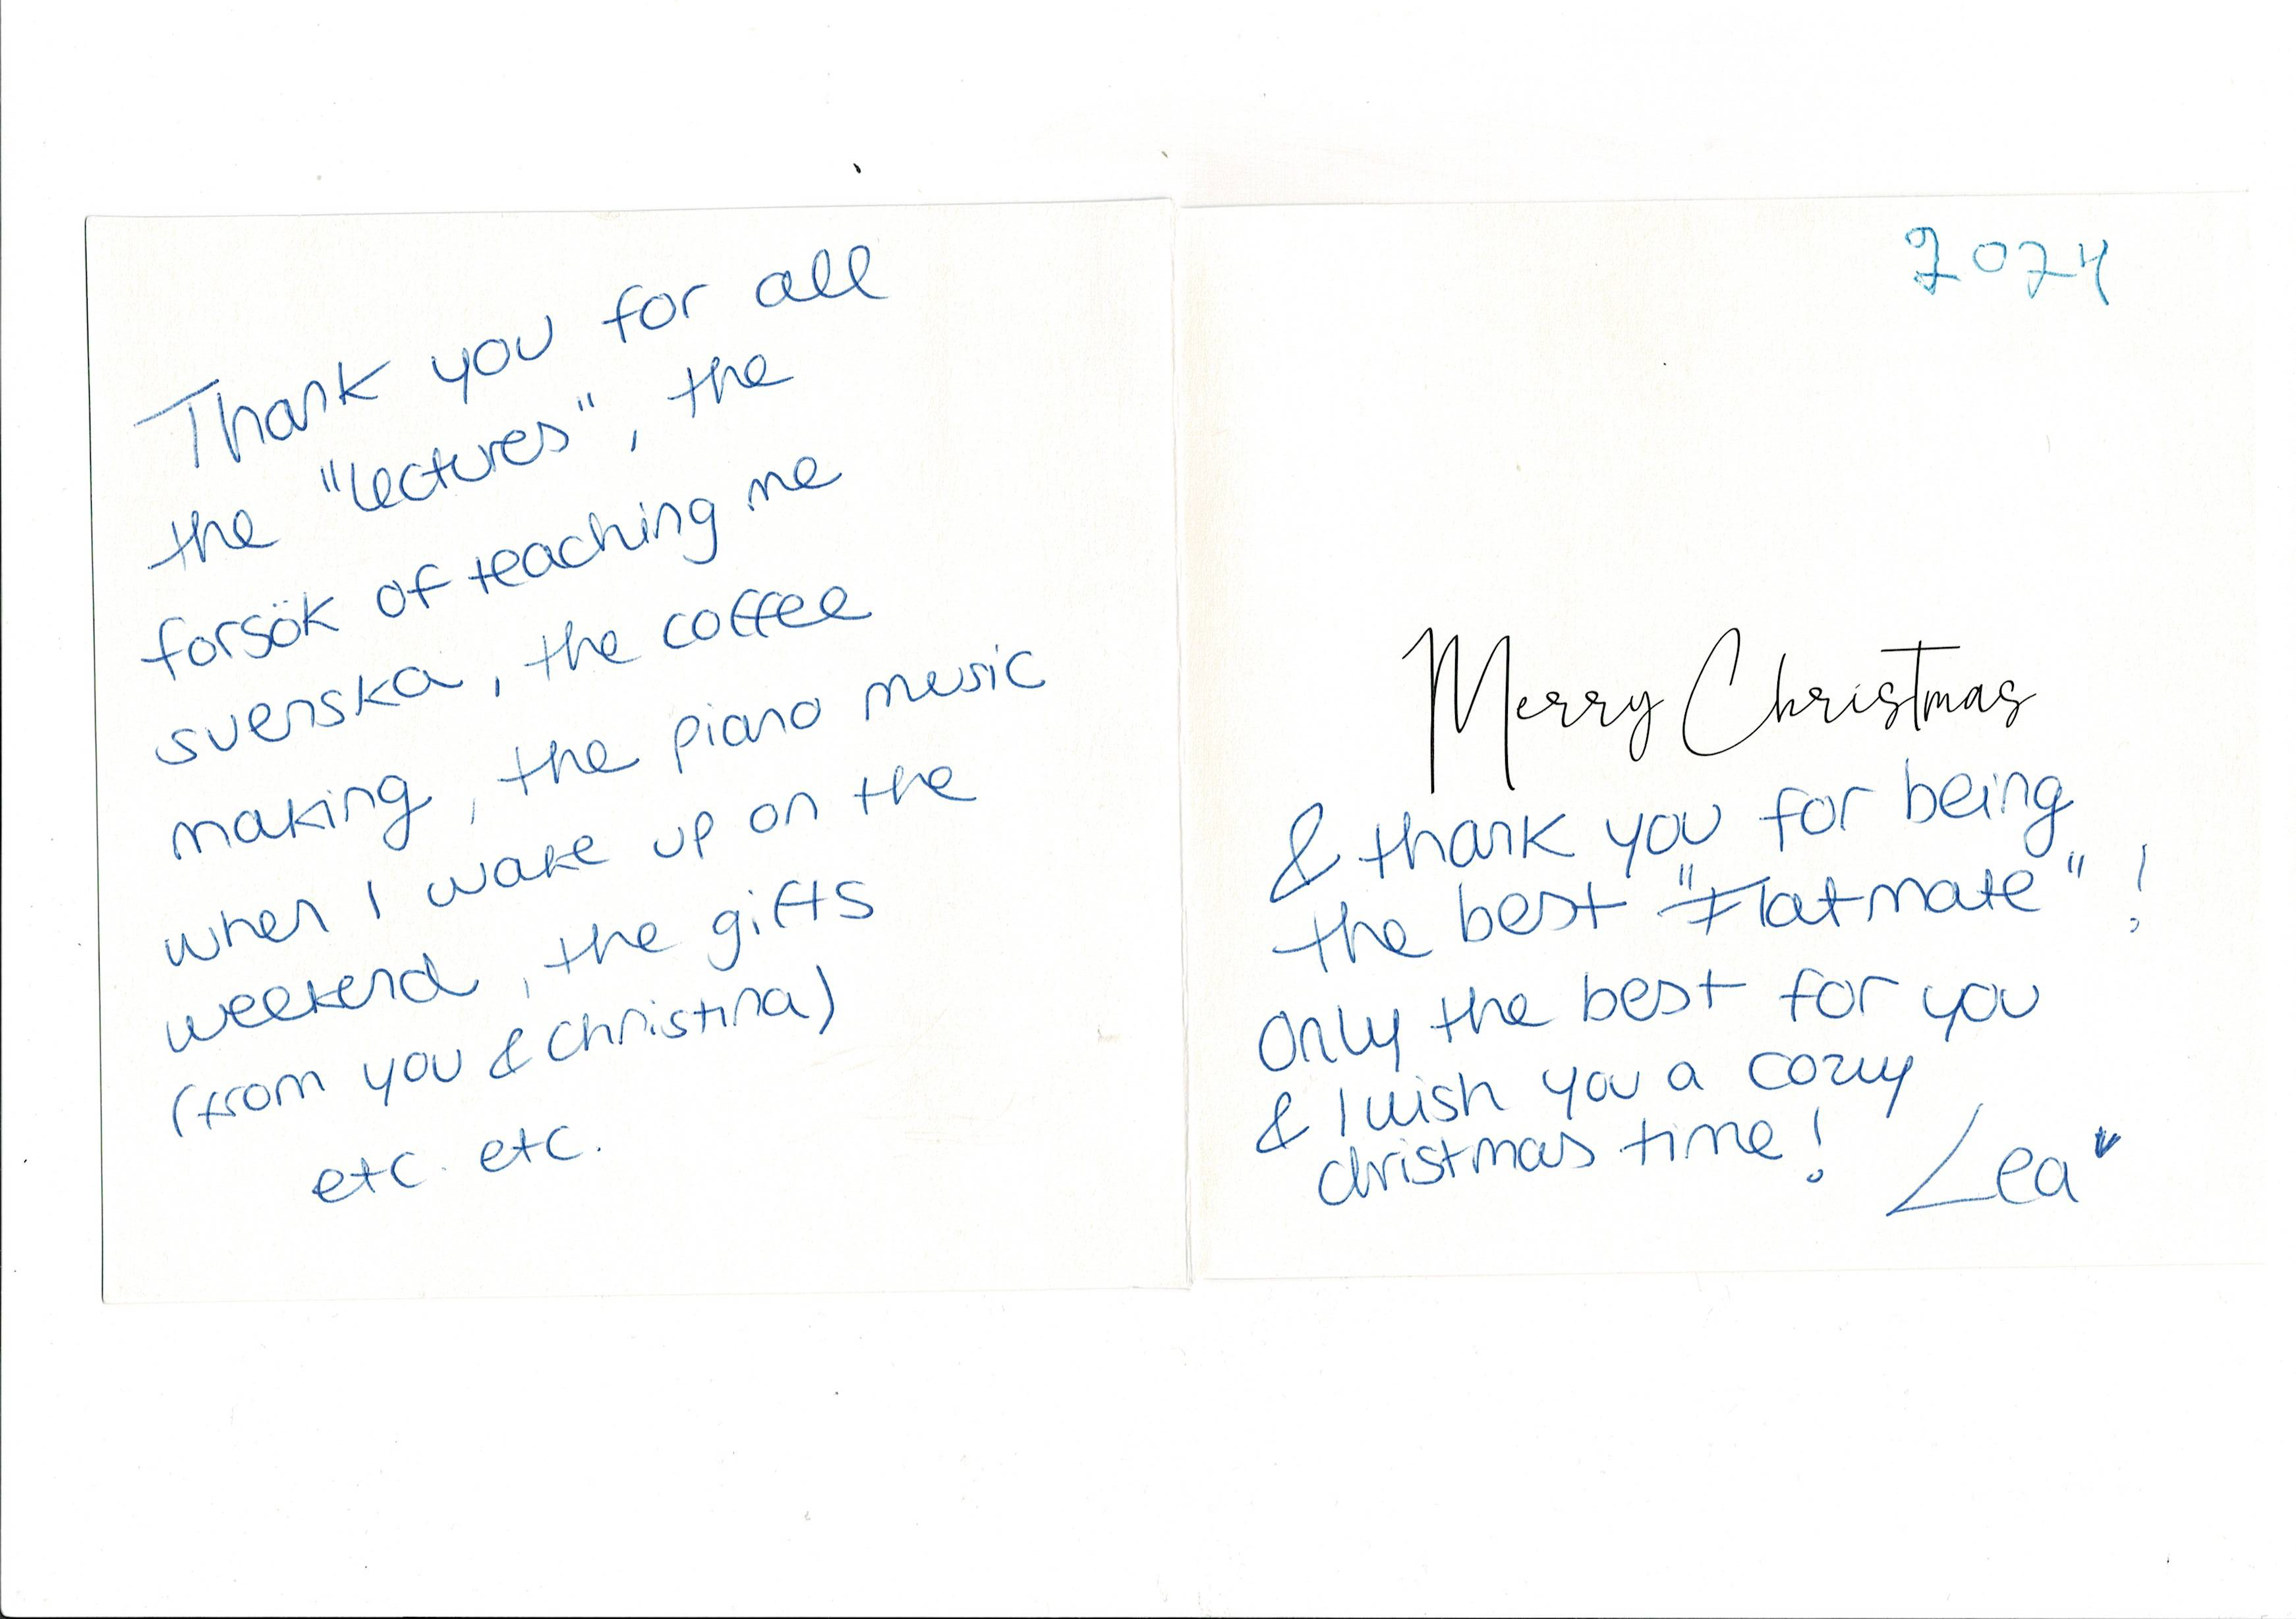 Thank you for all
the "lectures", the
forsök of teaching me
svenska, the coffee
making, the piano music
when I wake up on the
weekend, the gifts
(from you & Christina)
etc. etc.
2024
Merry Christmas
& thank you for being
the best "Flatmate"!
Only the best for you
& I wish you a cozy
christmas time!
Lea